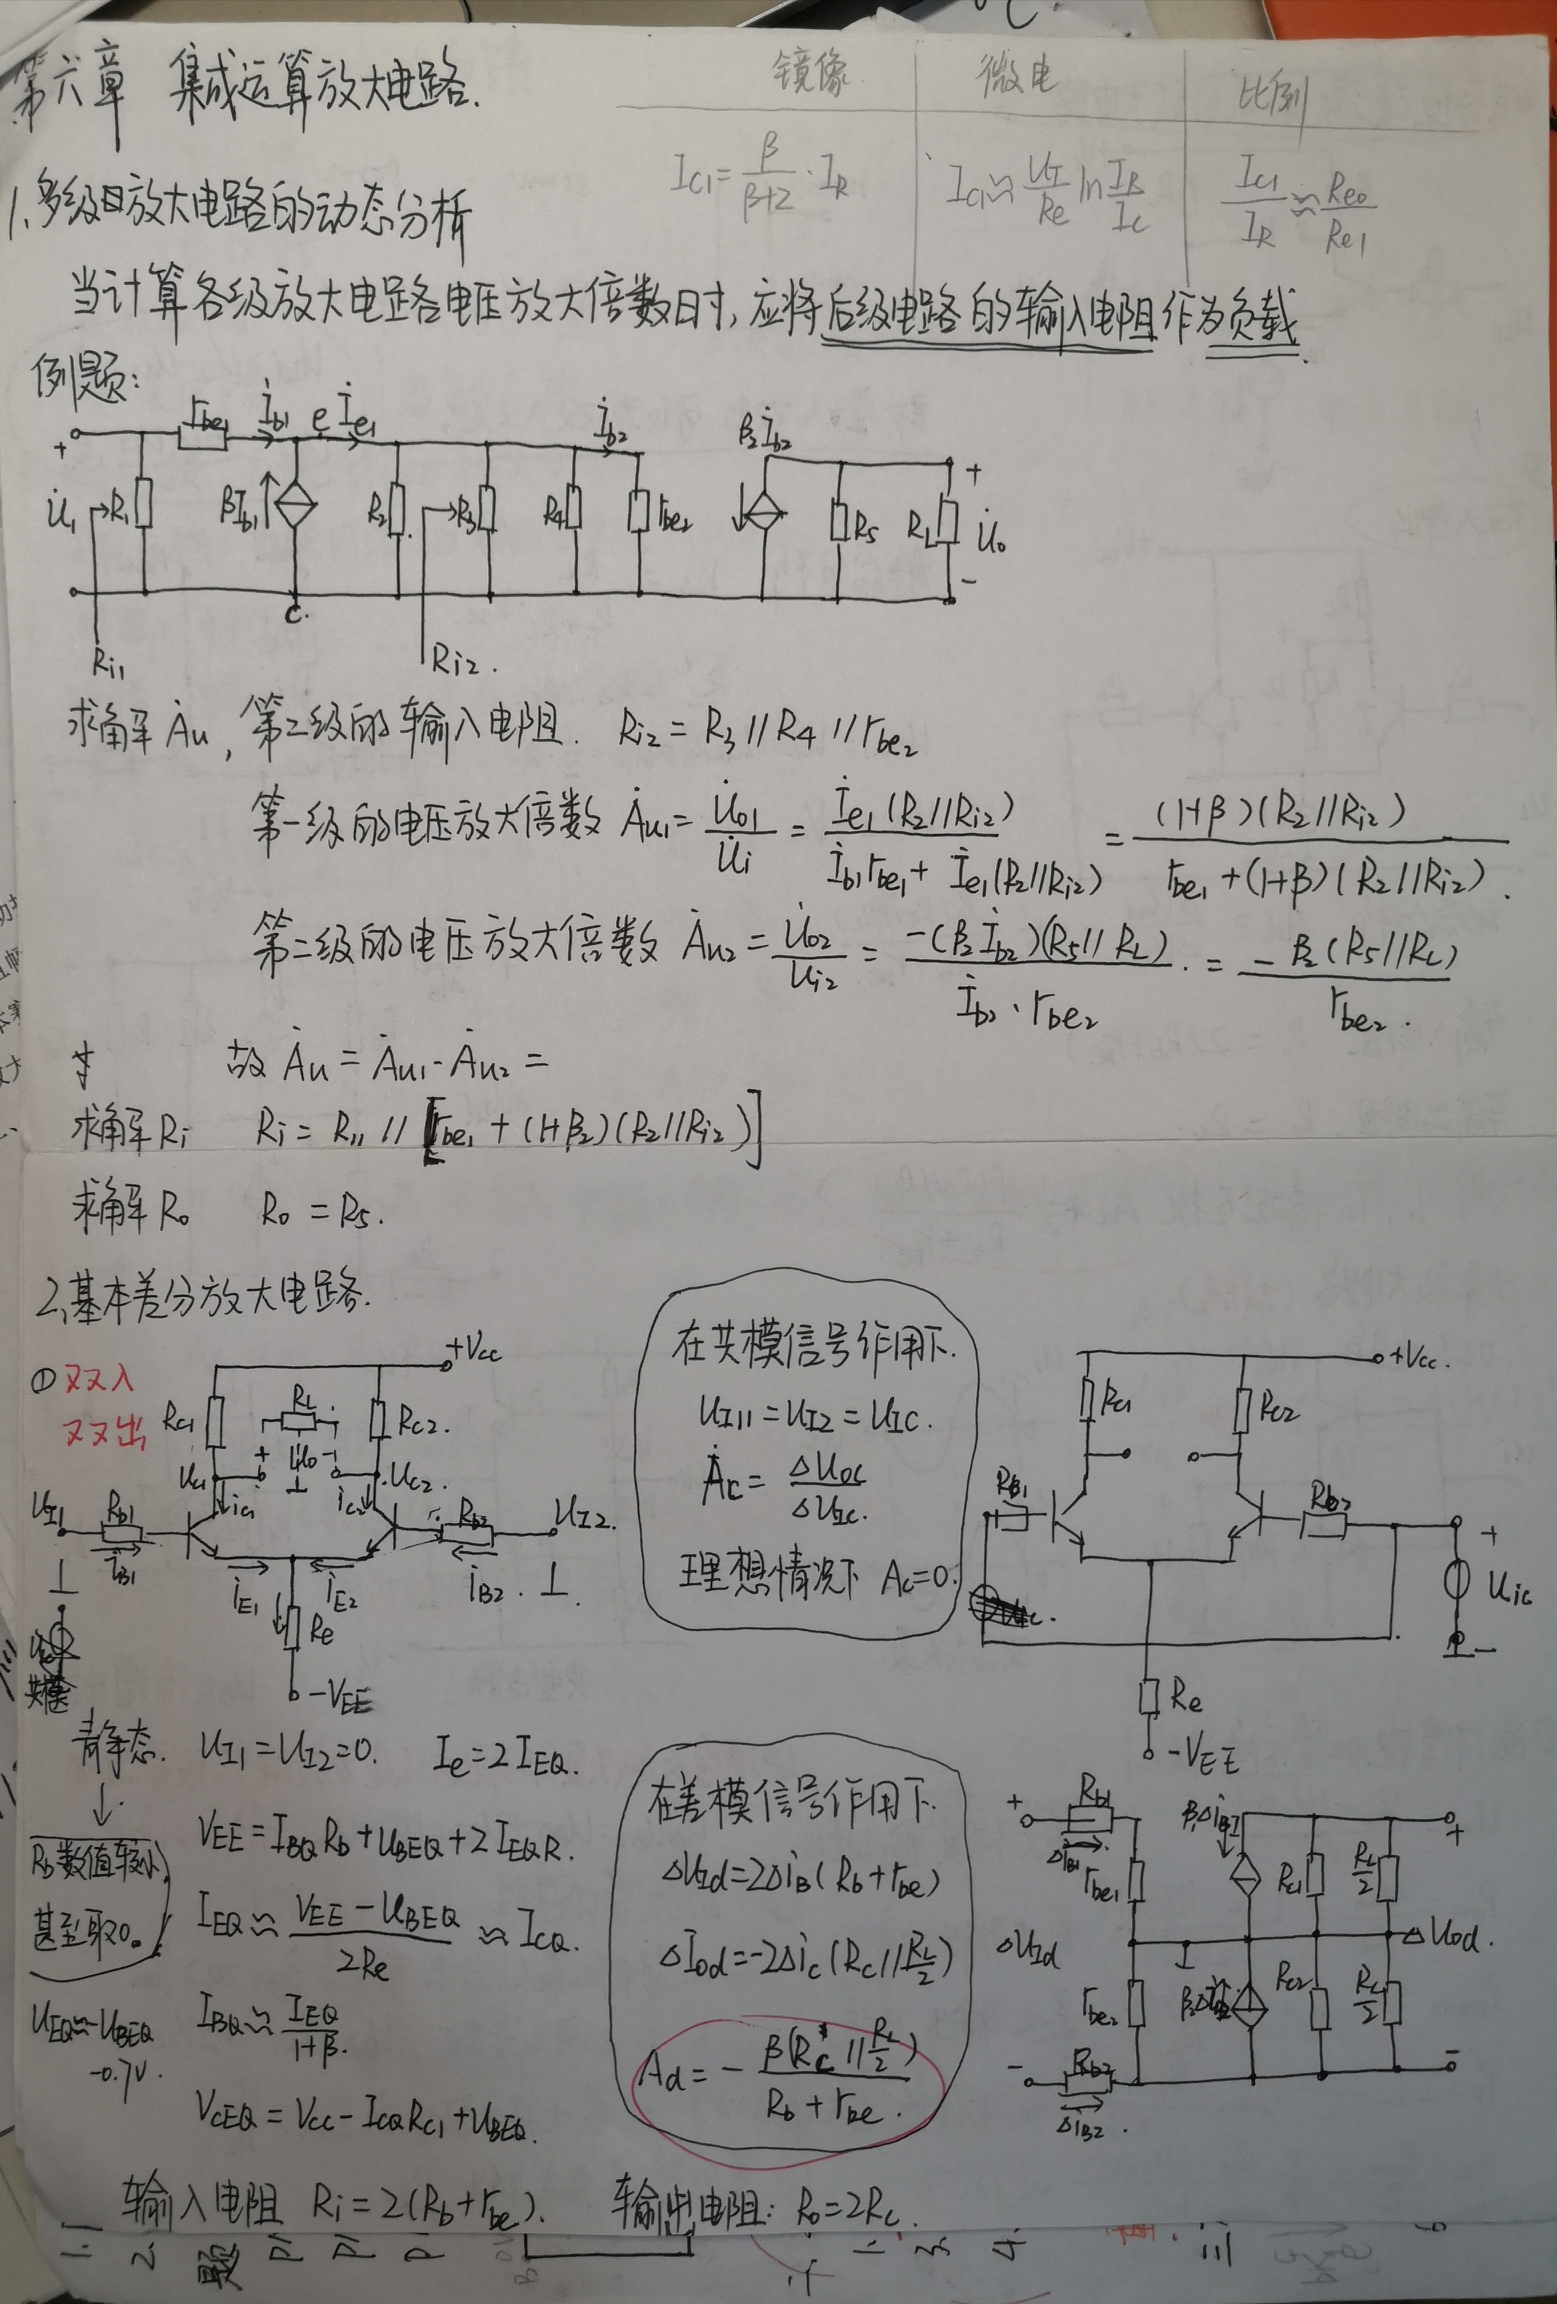 第六章 集成运算放大电路.
镜像 微电 比例
I_{C1}=\frac{β}{β+2}·I_R I_{C1}≈\frac{U_T}{Re}ln\frac{I_R}{I_C} \frac{I_{C1}}{I_R}≈\frac{Re0}{Re1}
1.多级放大电路的动态分析
当计算各级放大电路电压放大倍数时,应将后级电路的输入电阻作为负载.
例题:
r_{be1} İ_{b1} e İ_{e1} İ_{b2} β_2İ_{b2}
+ U̇_1 R_1 βI_{b1} R_2 R_3 R_4 r_{be2} R_5 R_L + U̇_o -
c.
R_{i1} R_{i2}.
求解Ȧu, 第二级的输入电阻. R_{i2}=R_3//R_4//r_{be2}
第一级的电压放大倍数 Ȧ_{u1}=\frac{U̇_{o1}}{U̇_i}=\frac{İ_{e1}(R_2//R_{i2})}{İ_{b1}r_{be1}+İ_{e1}(R_2//R_{i2})}=\frac{(1+β)(R_2//R_{i2})}{r_{be1}+(1+β)(R_2//R_{i2})}.
第二级的电压放大倍数 Ȧ_{u2}=\frac{U̇_{o2}}{U_{i2}}=\frac{-(β_2İ_{b2})(R_5//R_L)}{İ_{b2}·r_{be2}}.=\frac{-β_2(R_5//R_L)}{r_{be2}}.
故 Ȧu=Ȧ_{u1}·Ȧ_{u2}=
求解Ri Ri=R_{11}//[r_{be1}+(1+β_2)(R_2//R_{i2})]
求解Ro Ro=R_5.
2.基本差分放大电路.
①双入
双出
+Vcc
R_{C1} R_L R_{C2}.
U_{C1} + U_o - U_{C2}.
i_{C1} i_{C2}
U_{I1} R_{b1} R_{b2} U_{I2}.
i_{B1} i_{E1} i_{E2} i_{B2}.
Re
-V_{EE}
在共模信号作用下.
U_{I1}=U_{I2}=U_{IC}.
Ȧ_C=\frac{ΔU_{OC}}{ΔU_{IC}}.
理想情况下 Ac=0.
+Vcc.
R_{C1} R_{C2}
R_{B1} R_{b2}
+ U_{ic} -
Re
-V_{EE}
静态. U_{I1}=U_{I2}=0. I_e=2I_{EQ}.
V_{EE}=I_{BQ}R_b+U_{BEQ}+2I_{EQ}R.
R_b数值较小,
甚至取0。
I_{EQ}≈\frac{V_{EE}-U_{BEQ}}{2Re}≈I_{CQ}.
U_{EQ}≈-U_{BEQ}
-0.7V.
I_{BQ}≈\frac{I_{EQ}}{1+β}.
V_{CEQ}=V_{CC}-I_{CQ}R_{C1}+U_{BEQ}.
在差模信号作用下.
ΔU_{Id}=2Δi_B(R_b+r_{be})
ΔI_{od}=-2Δi_c(R_C//\frac{R_L}{2})
A_d=-\frac{β(R_C//\frac{R_L}{2})}{R_b+r_{be}}.
+ R_{b1} +
Δi_{B1} r_{be1} R_{C1} \frac{R_L}{2}
ΔU_{Id} ΔU_{od}.
r_{be2} R_{C2} \frac{R_L}{2}
- R_{b2} -
Δi_{B2}.
输入电阻 Ri=2(R_b+r_{be}). 输出电阻: Ro=2R_C.